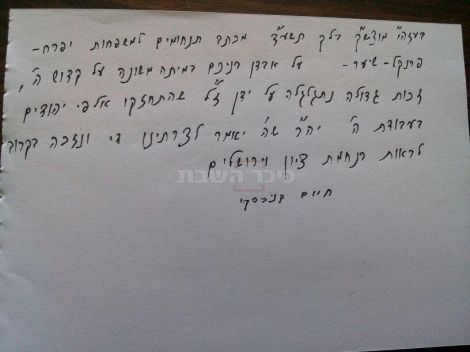 בעזהי" מוצש"ק בלק תשע"ד מכתב תנחומים למשפחות יפרח-
פרנקל - שיער - על אבדן בניכם במיתה משונה על קדוש ה',
זכות גדולה נתגלגלה על ידן ז"ל שהתחזקו אלפי יהודים
בעבודת ה' יה"ר שה' יאמר לצרתינו די ונזכה בקרוב
לראות בנחמת ציון וירושלים
כיכר השבת
חיים קניבסקי